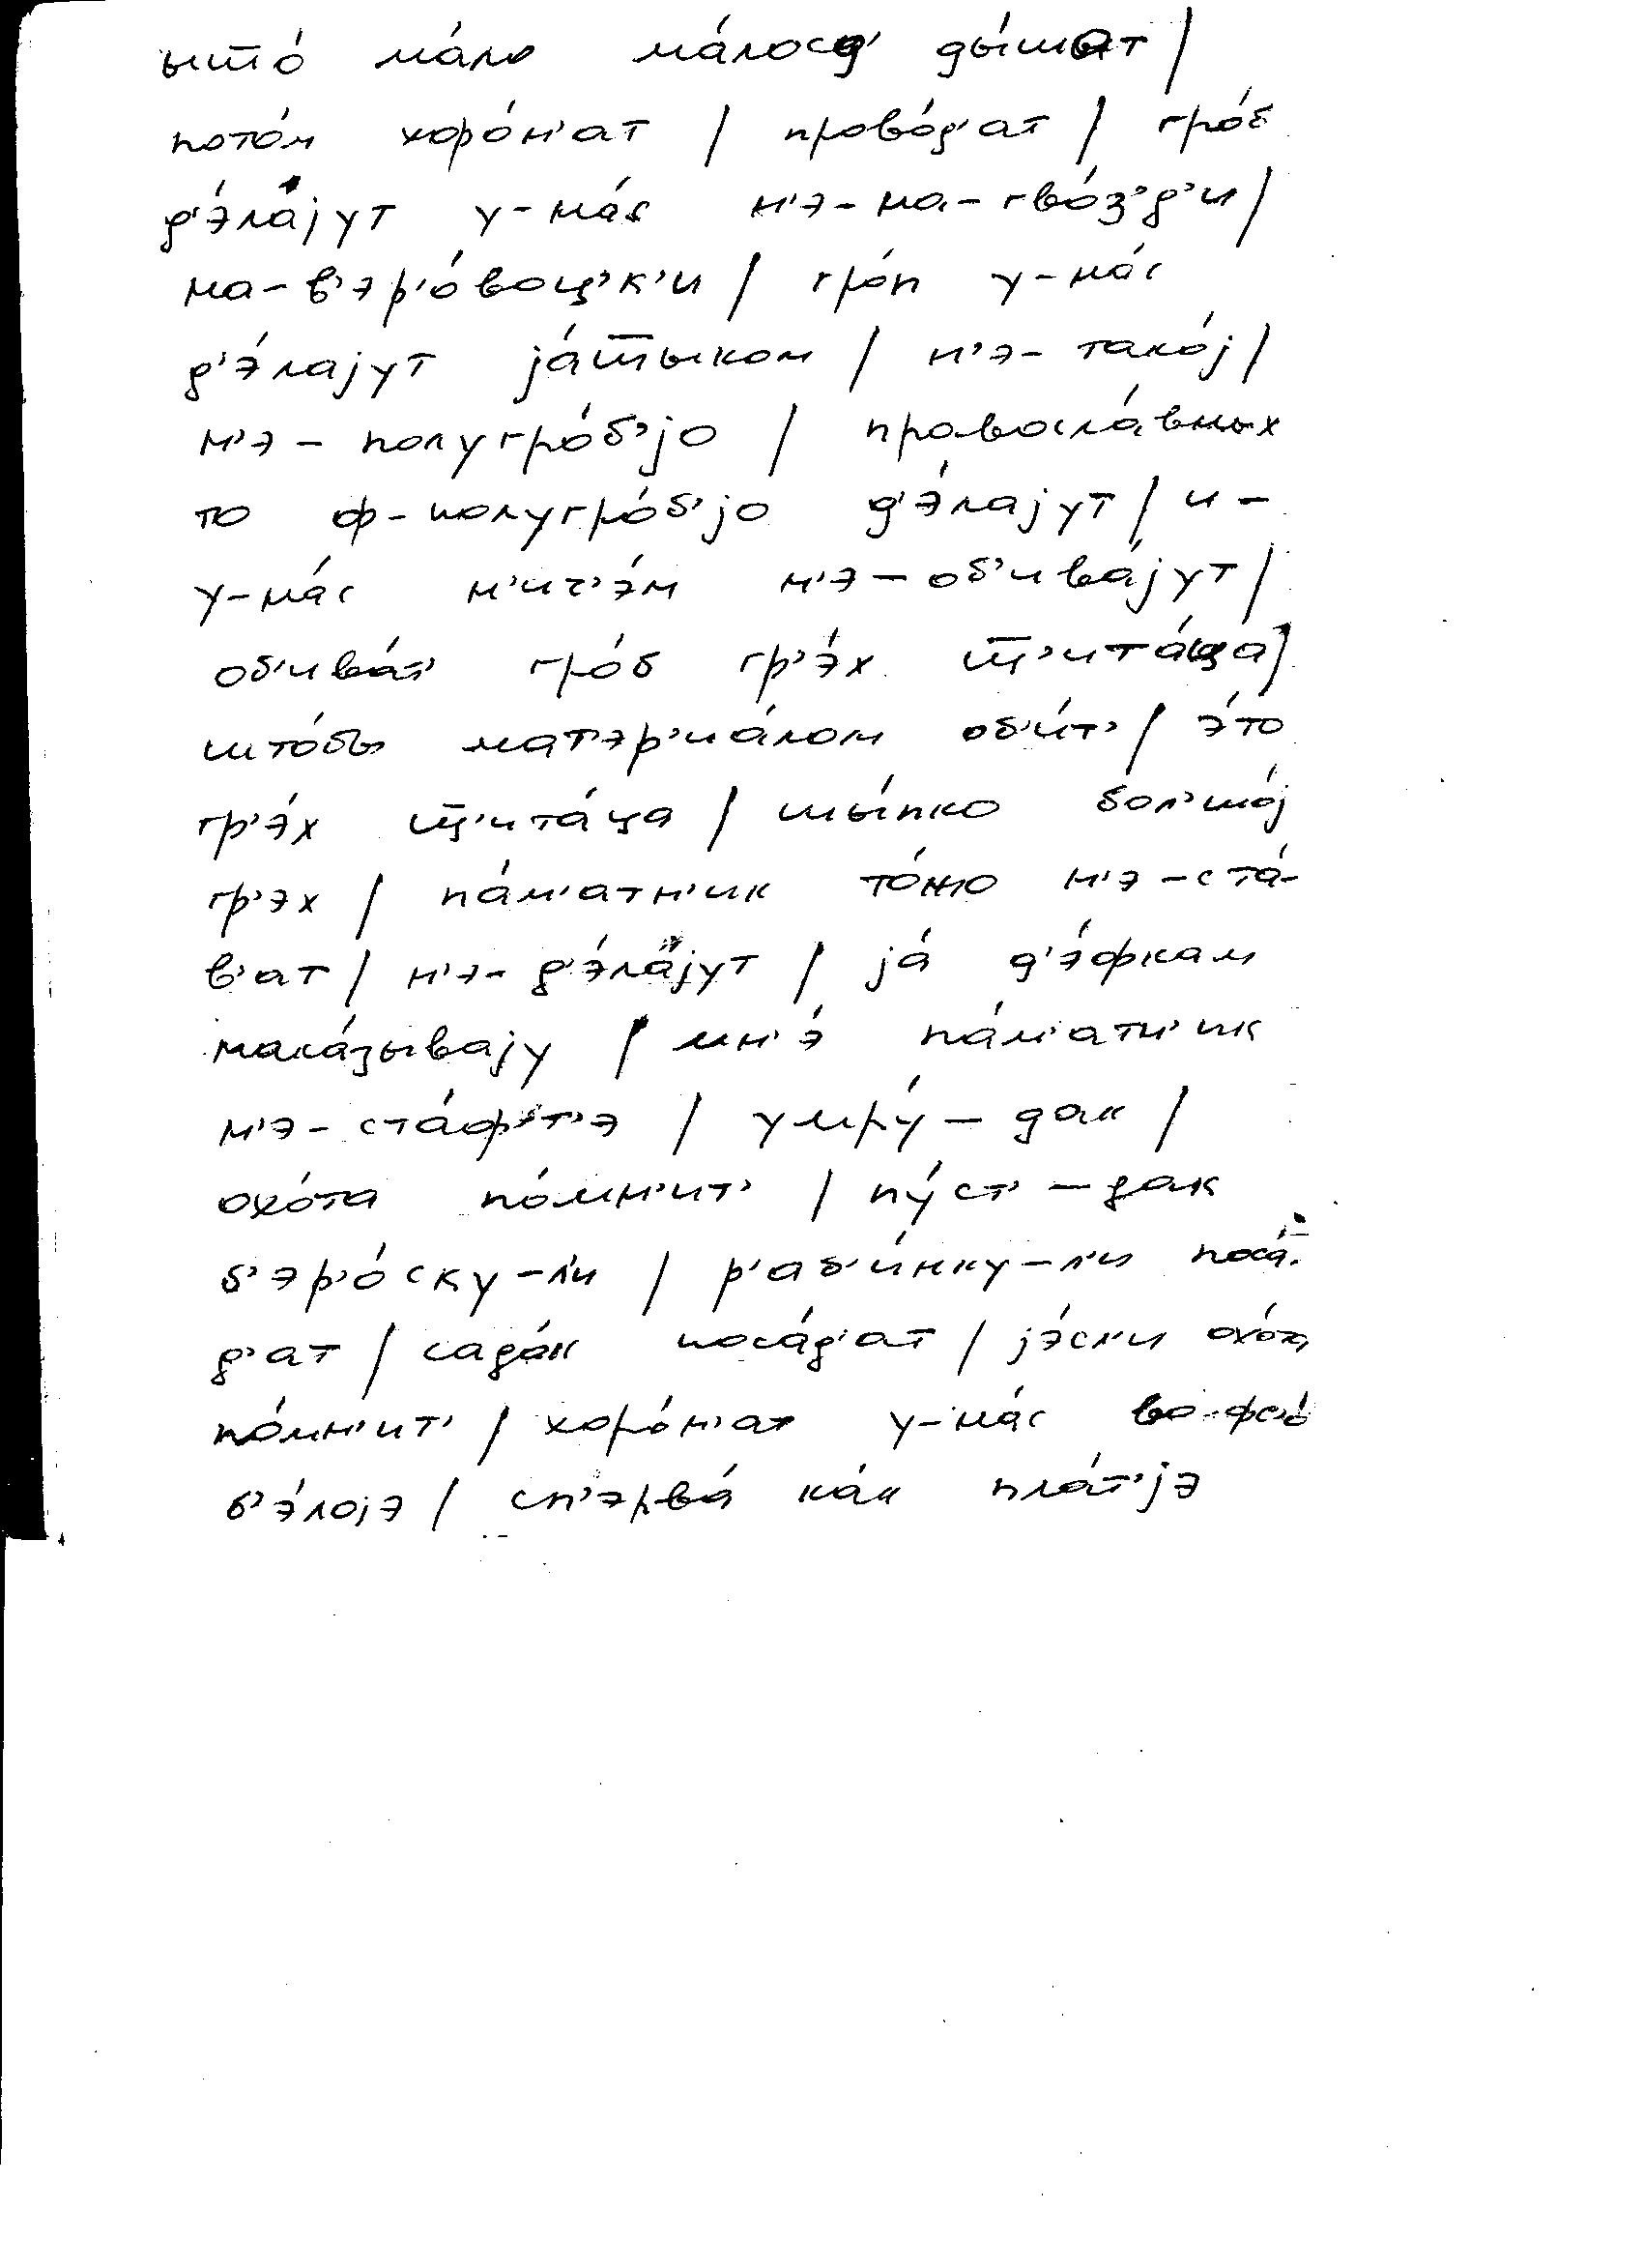 ыш̅о́ ма́ло ма́лос'т' ды́шат /
пото́м хоро́н'ат / прово́д'ат / гро́б
д'э́лаjут у-на́с н'э-на-гво́з'д'и /
на-в'эр'о́воц'к'и / гро́п у-на́с
д'э́лаjут jа́ш̅ыком / н'э-тако́j /
н'э-полугро́б'jо / правосла́вных
то ф-полугро́б'jо д'э́лаjут / и-
у-на́с н'ич'э́м н'э-об'ива́jут /
об'ива́т' гро́б гр'э́х ш̅'ита́ца /
што́бы мат'эр'иа́лом об'и́т' / э́то
гр'э́х ш̅'ита́ца / шы́пко бол'шо́j
гр'эх / па́м'атн'ик то́жо н'э-ста́-
в'ат / н'э-д'э́лаjут / jа́ д'э́фкам
нака́зываjу / мн'э́ па́м'атн'ик
н'э-ста́ф'т'э / умру́-дак /
охо́та по́мн'ит' / пу́ст'-дак
б'эр'о́ску-л'и / р'аб'и́нку-л'и поса́-
д'ат / садо́к поса́д'ат / jэ́сл'и охо́та
по́мн'ит' / хоро́н'ат у-на́с во-фс'о́
б'э́лоjэ / сп'эрва́ ка́к пла́т'jэ